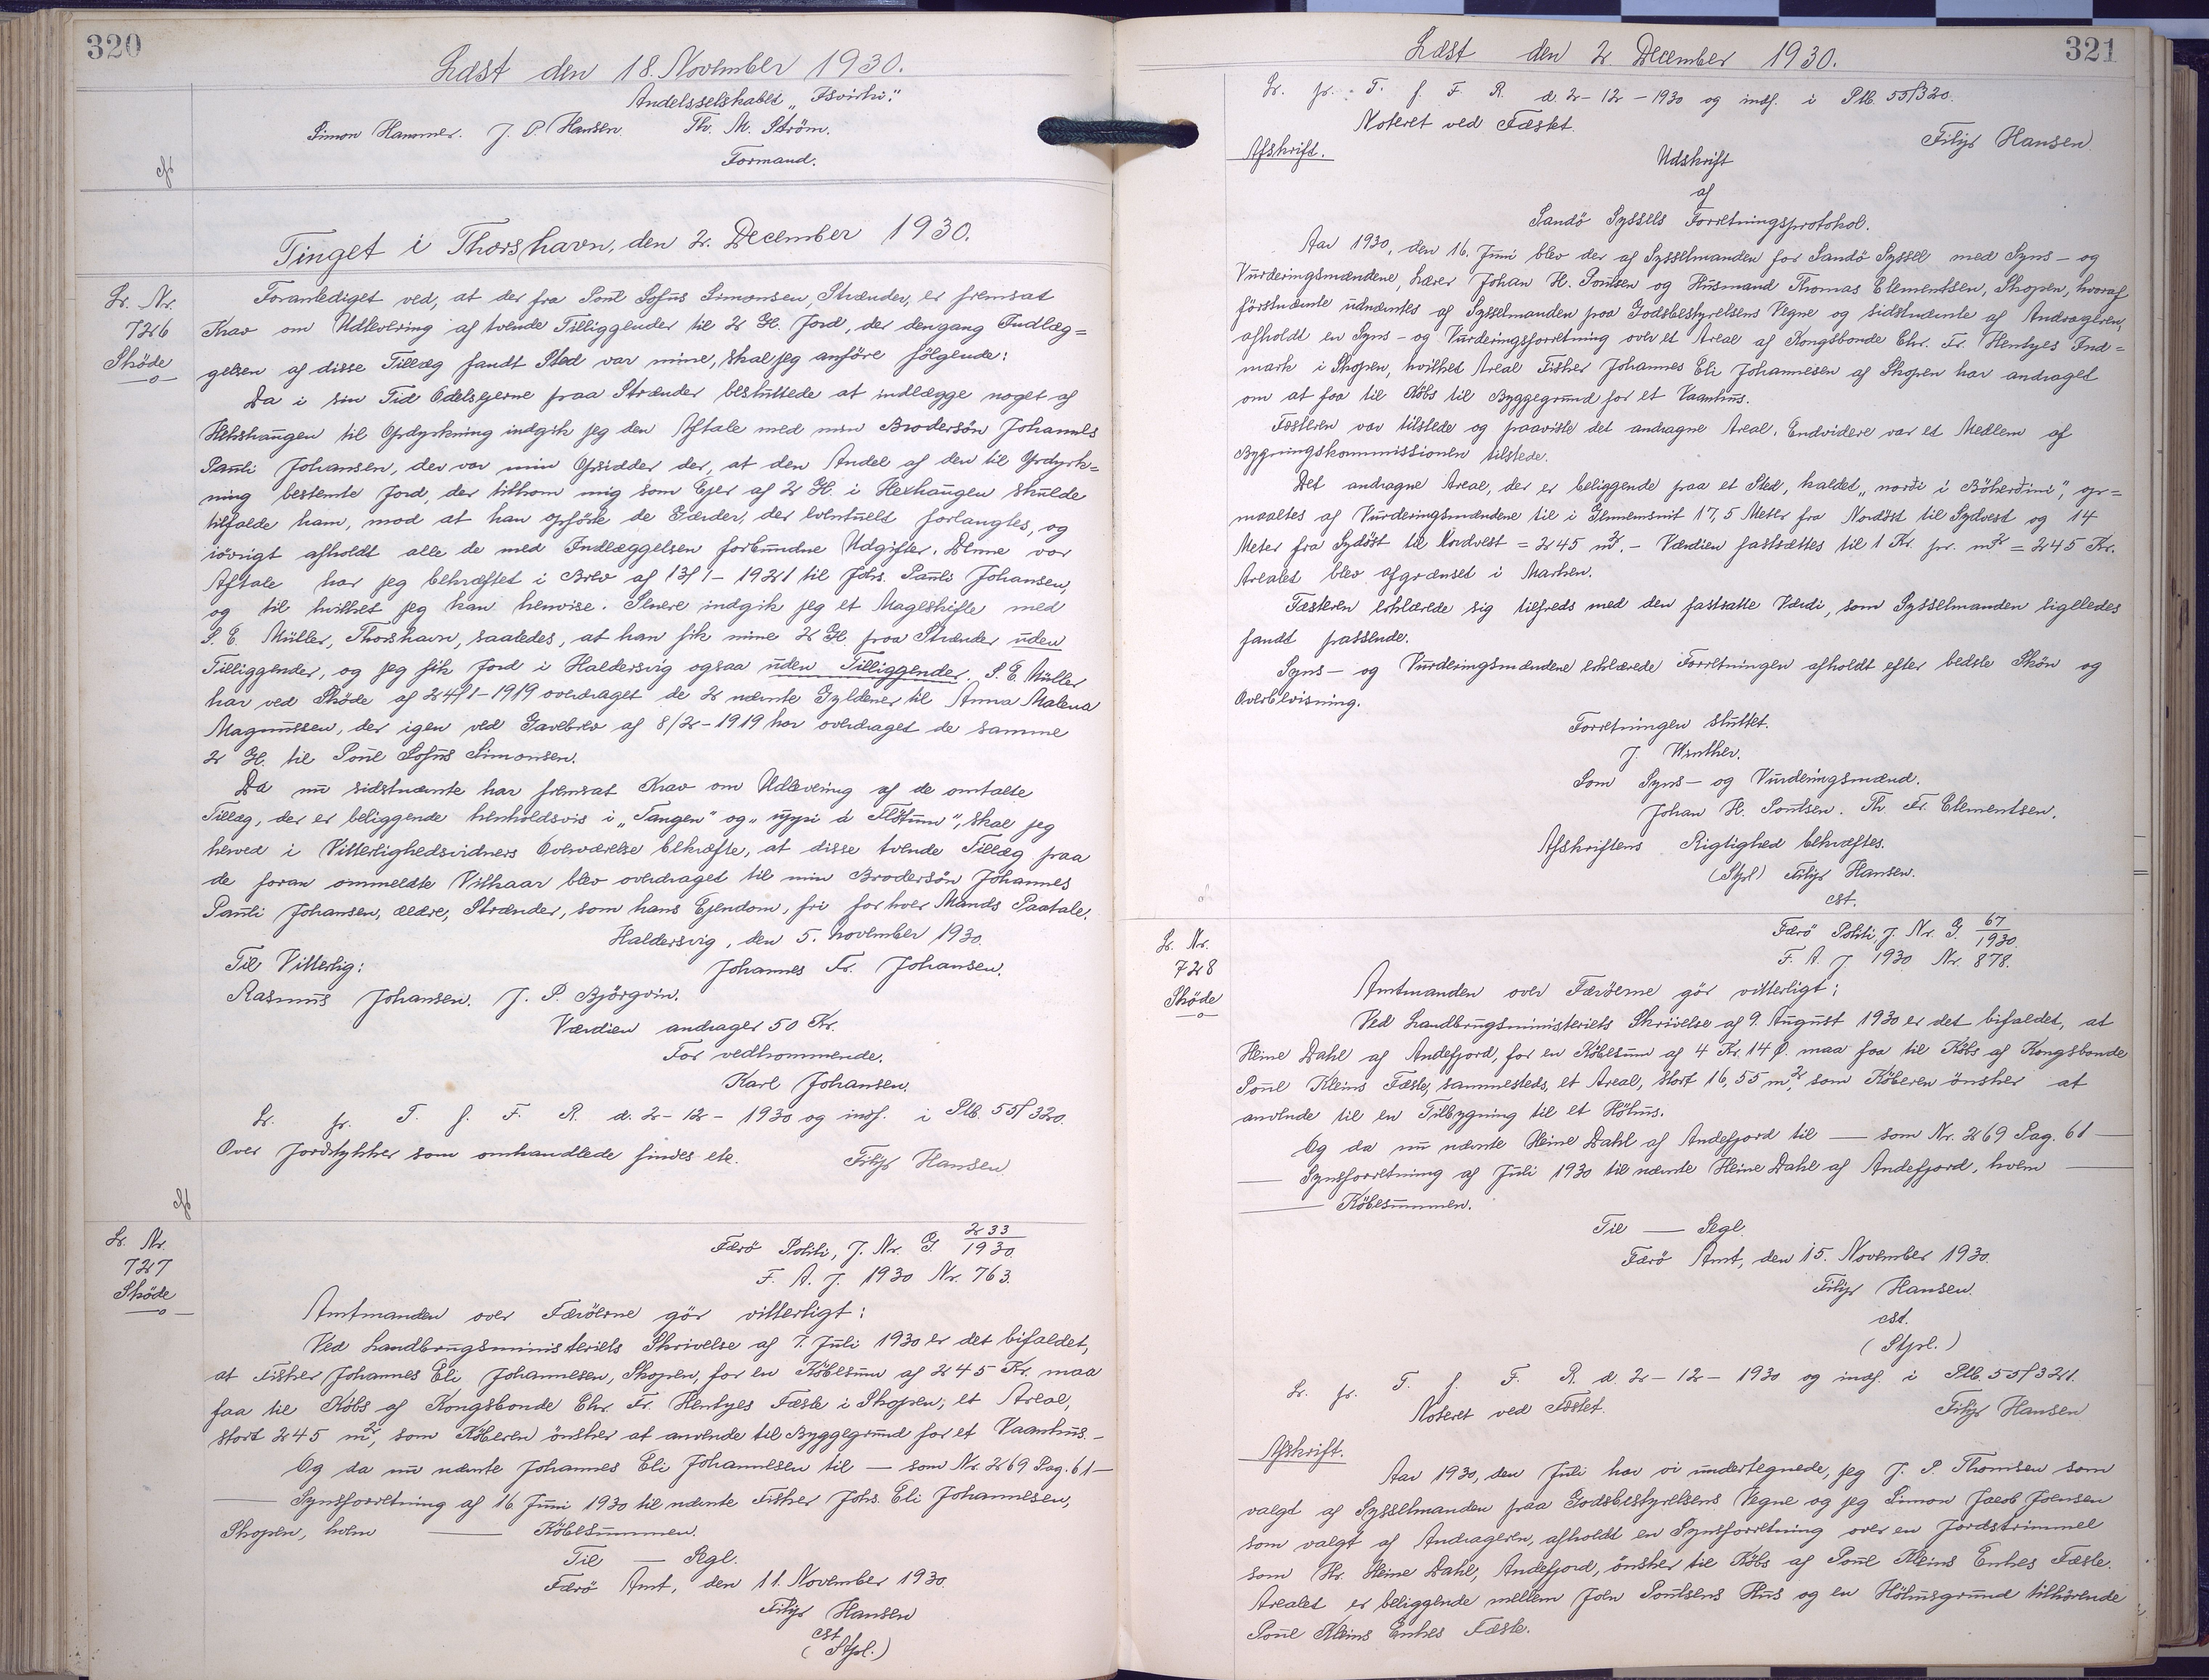 320
Læst den 18. November 1930.
Andelsselskabet „Isvirki“.
Simon Hammer. J. P. Hansen. Th. M. Ström.
Formand.
Tinget i Thorshavn, den 2. December 1930.
Lr. Nr.
726
Sköde
Foranlediget ved, at der fra Poul Sofus Simonsen, Strænder, er fremsat
Krav om Udlevering af tvende Tilliggender til 2 Gl. Jord, der dengang Indlæg=
gelsen af disse Tillæg fandt Sted var mine, skal jeg anföre fölgende:
Da i sin Tid Odelsejerne paa Strænder besluttede at indlægge noget af
til Opdyrkning indgik jeg den Aftale med min Brodersön Johannes
Pauli Johansen, der var min Opsidder der, at den Andel af den til Opdyrk=
ning bestemte Jord, der tilkom mig som Ejer af 2 Gl. i Hexhaugen skulde
tilfalde ham, mod at han opförte de Gærder, der eventuelt forlangtes, og
iövrigt afholdt alle de med Indlæggelsen forbundne Udgifter. Denne vor
Aftale har jeg bekræftet i Brev af 13/1 - 1921 til Johs. Pauli Johansen,
og til hvilket jeg kan henvise. Senere indgik jeg et Mageskifte med
S. E. Müller, Thorshavn, saaledes, at han fik mine 2 Gl. paa Strænder uden
Tilliggender, og jeg fik Jord i Haldersvig ogsaa uden Tilliggender. S. E. Müller
har ved Sköde af 24/1-1919 overdraget de 2 nævnte Gyldener til Anna Malena
Magnussen, der igen ved Gavebrev af 8/2-1919 har overdraget de samme
2 Gl. til Poul Sofus Simonsen.
Da nu sidstnævnte har fremsat Krav om Udlevering af de omtalte
Tillæg, der er beliggende henholdsvis i „Tangen“ og „uppi á Flötum“, skal jeg
herved i Vitterlighedsvidners Overværelse bekræfte, at disse tvende Tillæg paa
de foran ommeldte Vilkaar blev overdraget til min Brodersön Johannes
Pauli Johansen, ældre, Strænder, som hans Ejendom, fri for hver Mands Paatale.
Haldersvig, den 5. November 1930.
Til Vitterlig: Johannes Fr. Johansen.
Rasmus Johansen. J. P. Björgvin.
Værdien andrager 50 Kr.
For vedkommende.
Karl Johansen.
Lr. pr. T. f. F. R. d. 2-12-1930 og indf. i Ptb. 55/320.
Over Jordstykker som omhandlede findes etc. Filip Hansen
Lr. Nr.
727
Sköde
Færö Politi, J. Nr. G. 233/1930
F. A. J. 1930 Nr. 763.
Amtmanden over Færöerne gör vitterligt:
Ved Landbrugsministeriets Skrivelse af 7. Juli 1930 er det bifaldet,
at Fisker Johannes Eli Johannesen, Skopen, for en Köbesum af 245 Kr. maa
faa til Köbs af Kongsbonde Chr. Fr. Hentzes Fæste i Skopen, et Areal,
stort 245 m², som Köberen önsker at anvende til Byggegrund for et Vaanhus.-
Og da nu nævnte Johannes Eli Johannesen til — som Nr. 269 Pag. 61 —
— Synsforretning af 16 Juni 1930 til nævnte Fisker Johs. Eli Johannesen,
Skopen, hvem — Köbesummen.
Til — Segl.
Færö Amt, den 11. November 1930
Filip Hansen
cst.
(Stpl.)
321
Læst den 2. December 1930.
Lr. pr. T. f. F. R. d. 2-12-1930 og indf. i Ptb. 55/320.
Noteret ved Fæstet. Filip Hansen
Afskrift.
Udskrift
af
Sandö Syssels Forretningsprotokol.
Aar 1930, den 16. Juni blev der af Sysselmanden for Sandö Syssel med Syns- og
Vurderingsmændene, Lærer Johan H. Poulsen og Husmand Thomas Clementsen, Skopen, hvoraf
förstnævnte udnævntes af Sysselmanden paa Godsbestyrelsens Vegne og sidstnævnte af Andrageren,
afholdt en Syns- og Vurderingsforretning over et Areal af Kongsbonde Chr. Fr. Hentzes Ind=
mark i Skopen, hvilket Areal Fisker Johannes Eli Johannesen af Skopen har andraget
om at faa til Köbs til Byggegrund for et Vaanhus.
Fæsteren var tilstede og paaviste det andragne Areal. Endvidere var et Medlem af
Bygningskommissionen tilstede.
Det andragne Areal, der er beliggende paa et Sted, kaldet „norði i Böherðini“, op=
maaltes af Vurderingsmændene til i Gennemsnit 17,5 Meter fra Nordöst til Sydvest og 14
Meter fra Sydöst til Nordvest = 245 m². - Værdien fastsættes til 1 Kr. pr. m² = 245 Kr.
Arealet blev afgrænset i Marken.
Fæsteren erklærede sig tilfreds med den fastsatte Værdi, som Sysselmanden ligeledes
fandt passende.
Syns- og Vurderingsmændene erklærede Forretningen afholdt efter bedste Skön og
Overbevisning.
Forretningen sluttet.
J. Winther.
Som Syns- og Vurderingsmænd.
Johan H. Poulsen. Th. Fr. Clementsen.
Afskriftens Rigtighed bekræftes.
(Stpl) Filip Hansen.
cst.
Lr. Nr.
728
Sköde
Færö Politi, J. Nr. G. 67/1930.
F. A. J 1930 Nr. 878.
Amtmanden over Færöerne gör vitterligt:
Ved Landbrugsministeriets Skrivelse af 9. August 1930 er det bifaldet, at
Heine Dahl af Andefjord, for en Köbesum af 4 Kr. 14 Ø. maa faa til Köbs af Kongsbonde
Poul Kleins Fæste, sammesteds, et Areal, stort 16,55 m², som Köberen önsker at
anvende til en Tilbygning til et Höhus.
Og da nu nævnte Heine Dahl af Andefjord til — som Nr. 269 Pag. 61 —
— Synsforretning af Juli 1930 til nævnte Heine Dahl af Andefjord, hvem —
— Köbesummen.
Til — Segl.
Færö Amt, den 15. November 1930.
Filip Hansen.
cst.
(Stpl.)
Lr. pr. T. f. F. R. d. 2-12-1930 og indf. i Ptb. 55/321.
Noteret ved Fæstet. Filip Hansen
Afskrift.
Aar 1930, den Juli har vi undertegnede, jeg J. P. Thomsen som
valgt af Sysselmanden paa Godsbestyrelsens Vegne og jeg Simon Jacob Joensen
som valgt af Andrageren, afholdt en Synsforretning over en Jordstrimmel
som Hr. Heine Dahl, Andefjord, önsker til Köbs af Poul Kleins Enkes Fæste.
Arealet er beliggende mellem Joen Poulsens Hus og en Höhusgrund tilhörende
Poul Kleins Enkes Fæste.